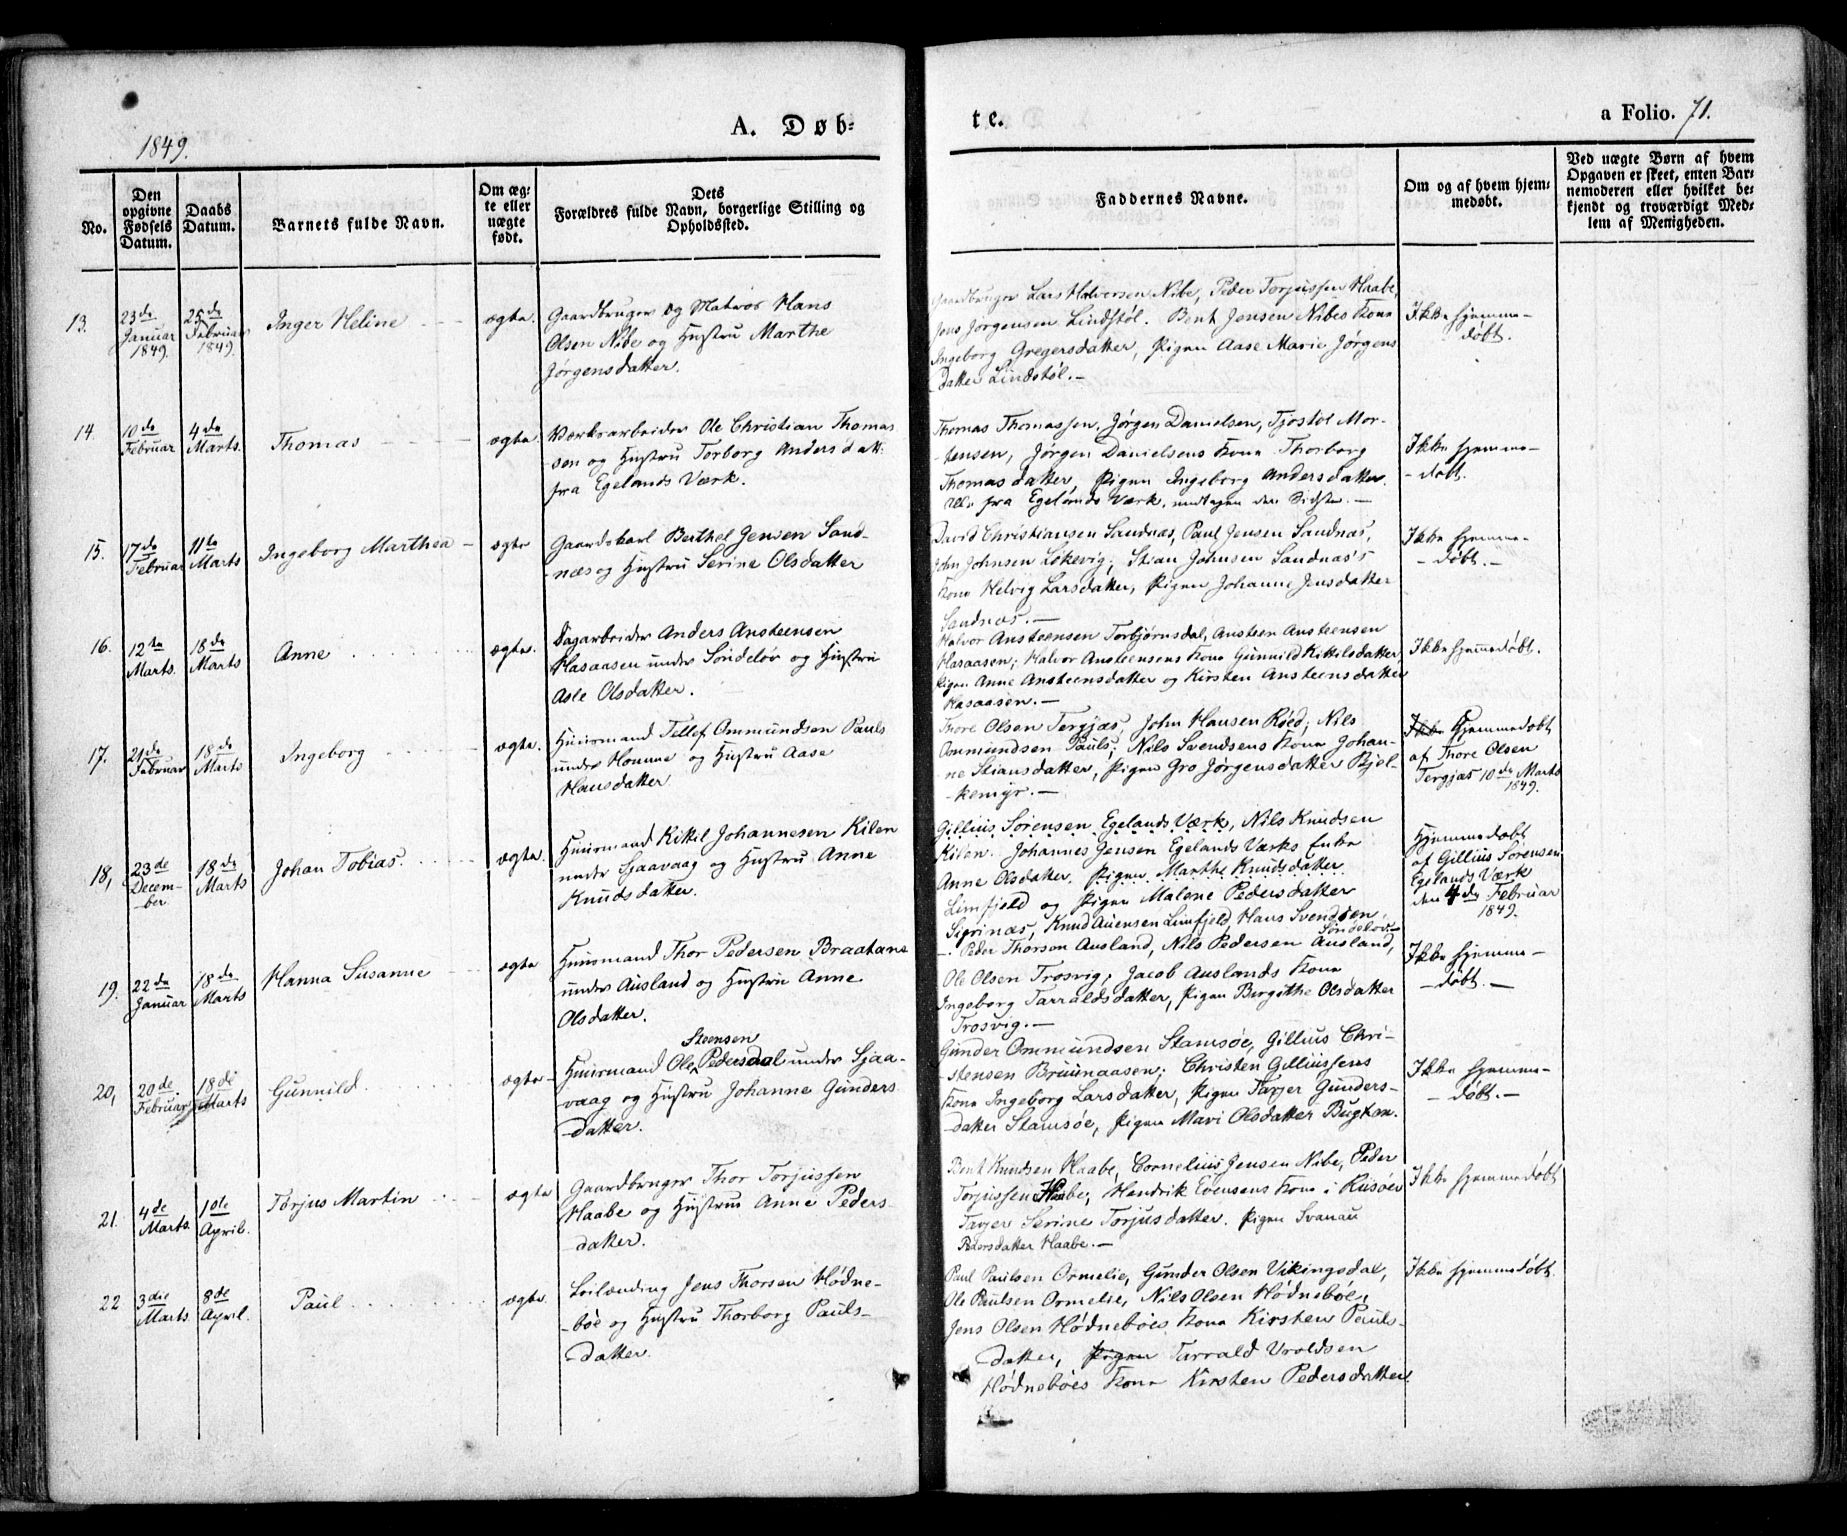 A. Døb-
te.
a Folio. 71.
1849.
No.
Den opgivne Fødsels Datum.
Daabs Datum.
Barnets fulde Navn.
Om ægte eller nægte født.
Dets Forældres fulde Navn, borgerlige Stilling og Opholdssted.
Faddernes Navne.
Om og af hvem hjemmedøbt.
Ved nægte Børn af hvem Opgaven er skeet, enten Barnemoderen eller hvilket bekjendt og troværdigt Medlem af Menigheden.
13. 23de Januar 1849. 25de Februar 1849. Inger Heline ægte.
Gaardbruger og Matros Hans
Olsen Nibe og Hustru Marthe
Jørgensdatter.
Gaardbruger Lars Halversen Nibe, Peder Torjussen Haabe,
Jens Jørgensen Lindstøl. Bent Jensen Nibes Kone
Ingeborg Gregersdatter, Pigen Aase Marie Jørgens
datter Lindstøl.-
Ikke hjemme-
døbt.
14. 10de Februar 4de Marts. Thomas ægte.
Værksarbeider Ole Christian Thomas
sen og Hustru Torborg Andersdatt:
fra Egelands Værk.
Thomas Thomassen, Jørgen Danielsen, Tjostol Mor-
tensen, Jørgen Danielsens Kone Thorborg
Thomasdatter, Pigen Ingeborg Andersdatter.
Alle fra Egelands Værk, undtagen den Sidste.-
Ikke hjemme-
-døbt.
15. 17de Februar 11te Marts Ingeborg Marthea ægte
Gaardskarl Berthel Jensen Sand-
næs og Hustru Serine Olsdatter
David Christiansen Sandnæs, Paul Jensen Sandnæs,
John Johnsen Løkevig, Stian Johnsen Sandnæs's
Kone Helvig Larsdatter, Pigen Johanne Jensdatter
Sandnæs.-
Ikke hjemme-
-døbt.-
16. 12te Marts. 18de Marts Anne ægte.
Dagarbeider Anders Ansteensen
Hasaasen under Søndeløv og Hustru
Asle Olsdatter.
Halvor Ansteensen Torbjørnsdal, Ansteen Ansteensen
Hasaasen; Halvor Ansteensens Kone Gunnild Kittilsdatter,
Pigen Anne Ansteensdatter og Kirsten Ansteensdatter
Hasaasen.-
Ikke hjemmedøbt.
17. 21de Februar 18de Marts Ingeborg ægte.
Huusmand Tellef Ommundsen Pauls
under Homme og Hustru Aase
Hansdatter.
Thore Olsen Tergjæs, John Hansen Røed, Nils
Ommundsen Pauls; Nils Svendsens Kone Johan-
ne Stiansdatter, Pigen Gro Jørgensdatter Bjel-
kemyr.-
Ikke Hjemmedøbt
af Thore Olsen
Tergjæs 10de Marts
1849.
18, 23de December 18de Marts Johan Tobias. ægte.
Huusmand Kittil Johannesen Kilen
under Sjaavaag og Hustru Anne
Knudsdatter.
Gillius Sørensen Egelands Værk, Nils Knudsen
Kilen. Johannes Jensen Egelands Værks Enke
Anne Olsdatter. Pigen Marthe Knudsdatter
Limfjeld og Pigen Malene Pedersdatter
Sigrinæs, Knud Auensen Limfjeld, Hans Svendsen
Søndeløv.
Hjemmedøbt
af Gillius Sørensen
Egelands Værk
den 4de Februar
1849.
19. 22de Januar 18de Marts Hanna Susanne ægte
Huusmand Thor Pedersen Braatane
under Ausland og Hustru Anne
Olsdatter.
Peder Thorsen Ausland, Nils Pedersen Ausland,
Ole Olsen Trosvig; Jacob Auslands Kone
Ingeborg Tarraldsdatter, Pigen Birgithe Olsdatter
Trosvig.-
Ikke hjemme-
-døbt.-
20, 20de Februar 18de Marts Gunnild ægte
Steensen
Huusmand Ole Pedersdal under Sjaa-
vaag og Hustru Johanne Gunders
datter.
Gunder Ommundsen Stamsøe, Gillius Chri-
stensen Bruunaasen; Christen Gilliussens
Kone Ingeborg Larsdatter, Pigen Tarjer Gunders-
datter Stamsøe, Pigen Mari Olsdatter Bugten.
Ikke hjemme-
-døbt.-
21. 4de Marts. 1ste April. Torjus Martin ægte
Gaardbruger Thor Torjussen
Haabe og Hustrue Anne Peders
datter.
Bent Knudsen Haabe, Cornelius Jensen Nibe, Peder
Torjussen Haabe, Hendrik Evensens Kone i Risøer
Tarjer Serine Torjusdatter. Pigen Svanau
Pedersdatter Haabe.-
Ikke hjemmedøbt
22 3die Marts. 8de April. Paul ægte.
Leilænding Jens Thorsen Hødne-
bøe og Hustru Thorborg Pauls-
datter.
Paul Paulsen Ormelie, Gunder Olsen Vikingsdal,
Ole Paulsen Ormelie, Nils Olsen Hødnebøe,
Jens Olsen Hødnebøes Kone Kirsten Pauls-
datter, Pigen Tarrald Vroldsen
Hødnebøes Kone Kirsten Pedersdatter.
Ikke hjemmedøbt.